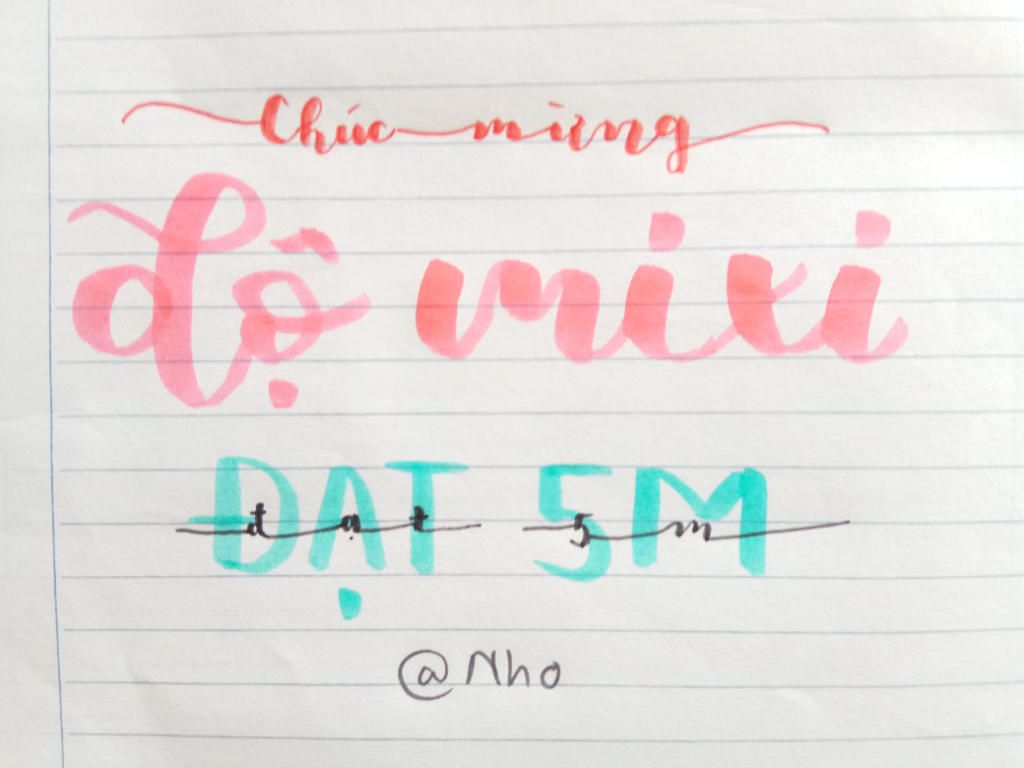 Chúc mừng
độ mixi
ĐẠT 5M
đạt 5m
@Nho